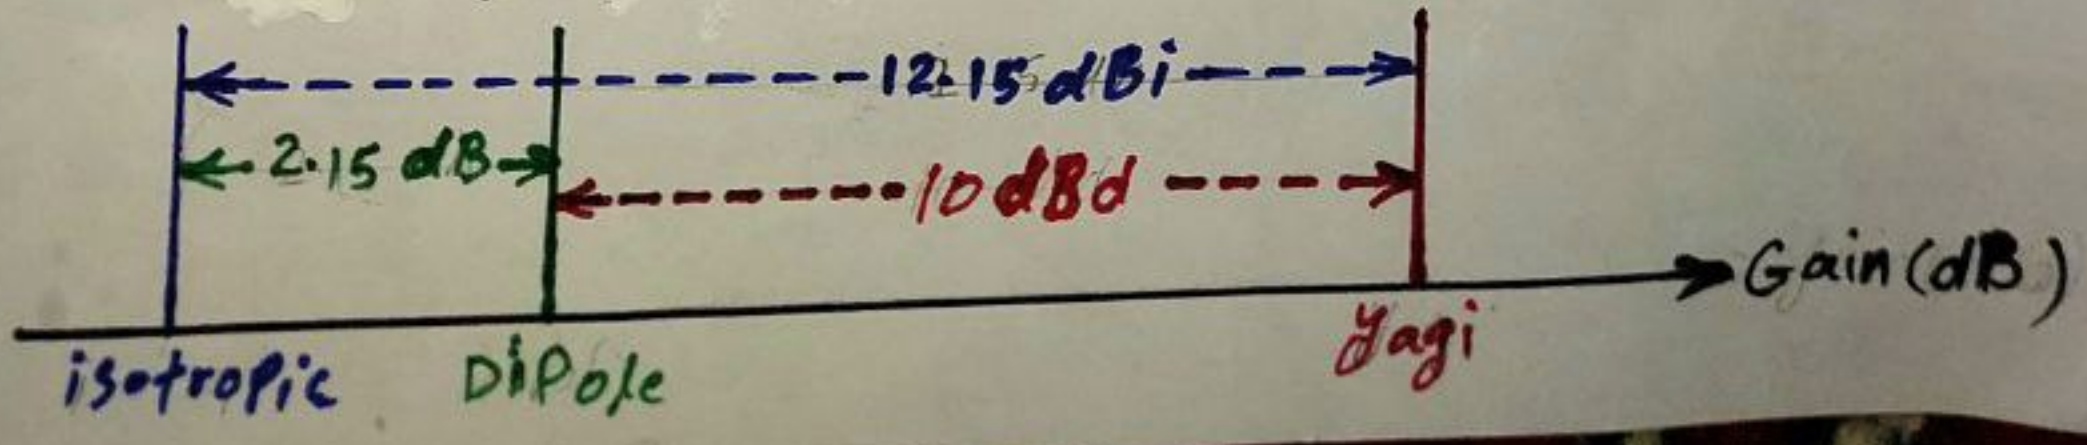 12.15 dBi
2.15 dB
10 dBd
Gain (dB)
isotropic
DiPole
Yagi